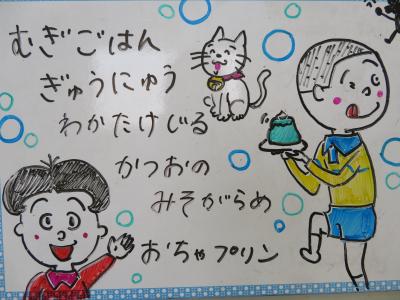 むぎごはん
ぎゅうにゅう
わかたけじる
かつおの
みそがらめ
おちゃプリン